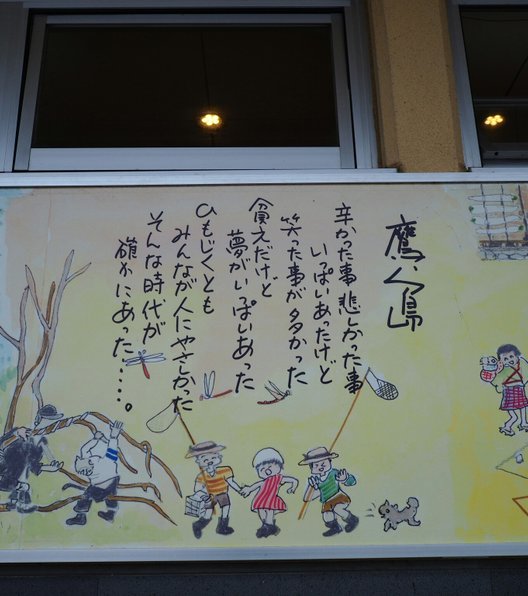 鷹島
辛かった事 悲しかった事
いっぱいあったけど
笑った事が多かった
貧乏だけど
夢がいっぱいあった
ひもじくとも
みんなが人にやさしかった
そんな時代が
確かにあった・・・・。